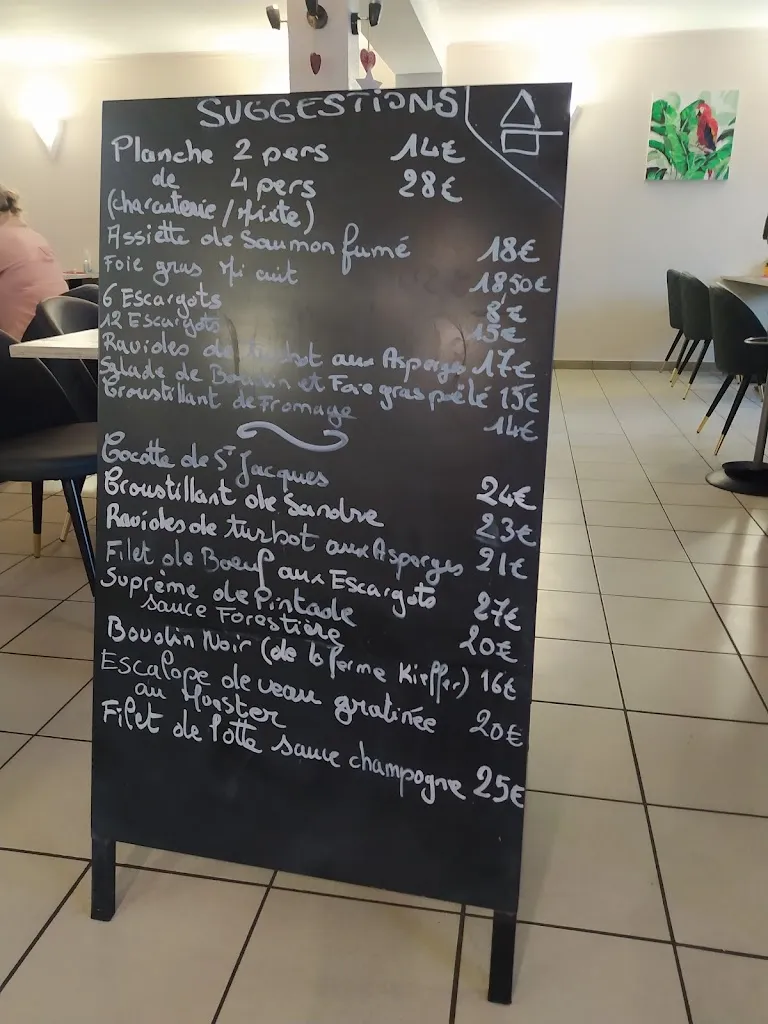 SUGGESTIONS
Planche 2 pers 14€
de 4 pers 28€
(charcuterie / Mixte)
Assiette de Saumon fumé 18€
Foie gras Mi cuit 18,50€
6 Escargots 8€
12 Escargots 15€
Ravioles de turbot aux Asperges 17€
Salade de Boudin et Foie gras poêlé 15€
Croustillant de Fromage 14€
Cocotte de St Jacques 24€
Croustillant de Sandre 23€
Ravioles de turbot aux Asperges 21€
Filet de Boeuf aux Escargots 27€
Suprème de Pintade 20€
sauce Forestière
Boudin Noir (de la ferme Kieffer) 16€
Escalope de veau gratinée 20€
au Munster
Filet de lotte sauce champagne 25€